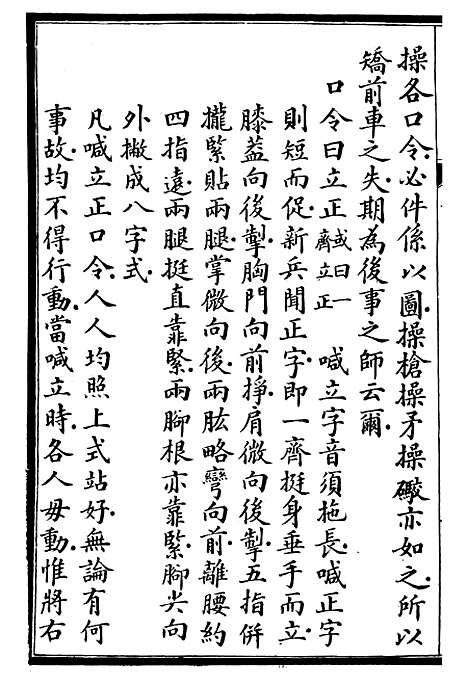 操各口令必件係以圖操槍操矛操礮亦如之所以
矯前車之失期為後事之師云爾
口令曰立正或曰一齊立正 喊立字音須拖長喊正字
則短而促新兵聞正字即一齊挺身垂手而立
膝蓋向後掣胸門向前掙肩微向後掣五指併
攏緊貼兩腿掌微向後兩肱略彎向前離腰約
四指遠兩腿挺直靠緊兩腳根亦靠緊腳尖向
外撇成八字式
凡喊立正口令人人均照上式站好無論有何
事故均不得行動當喊立時各人毋動惟將右